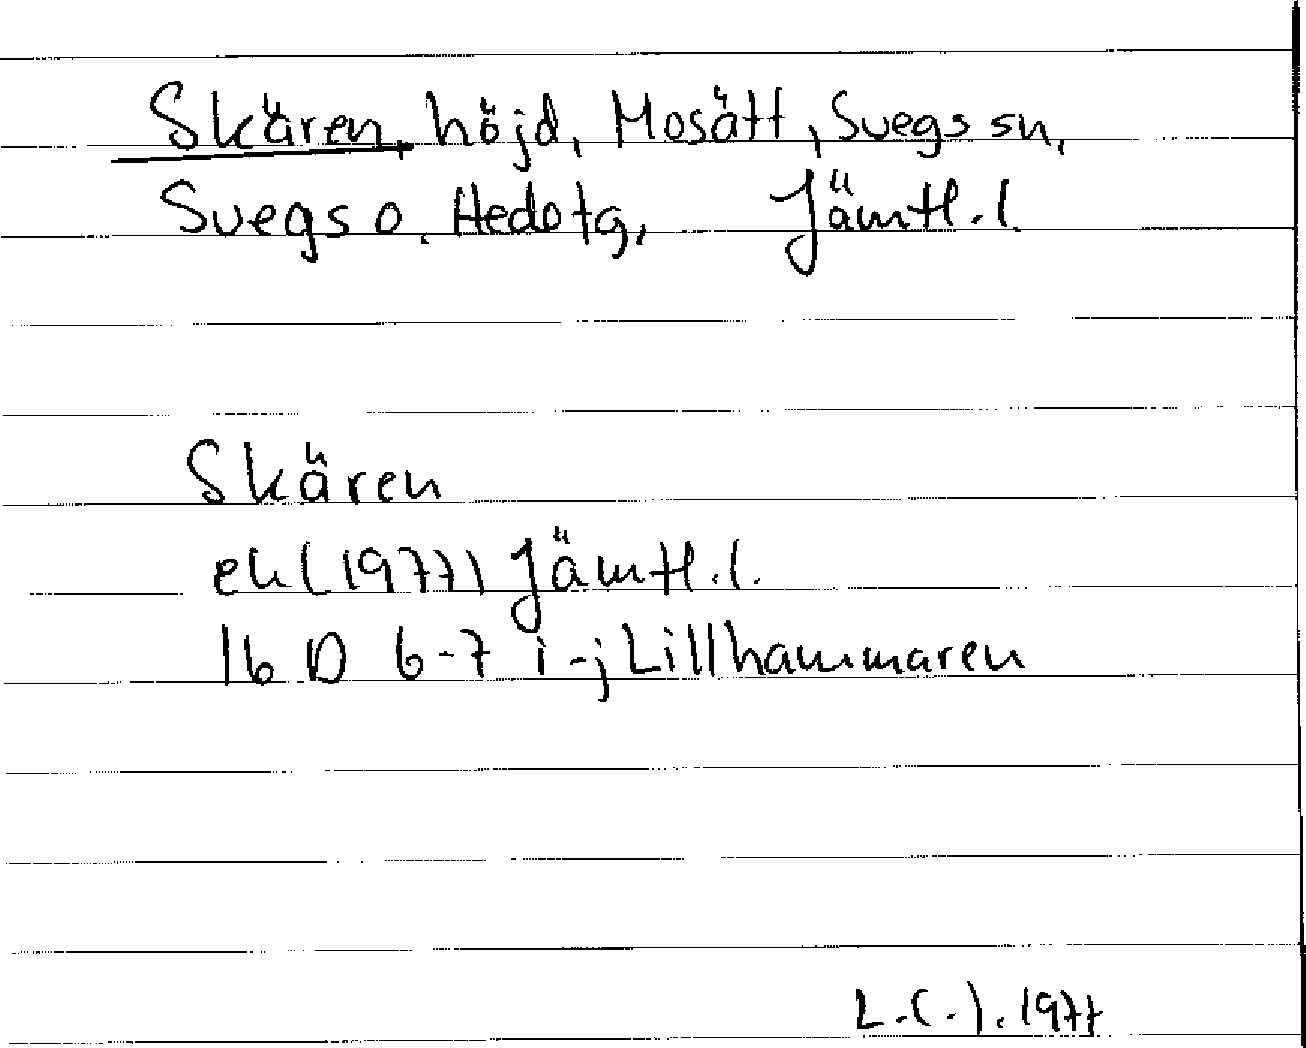 Skären, höjd, Mosätt, Svegs sn,
Svegs o. Hedetg, Jämtl.l.
Skären
ek (1977) Jämtl.l.
16 D 6-7 i-j Lillhammaren
L.(.). 1977